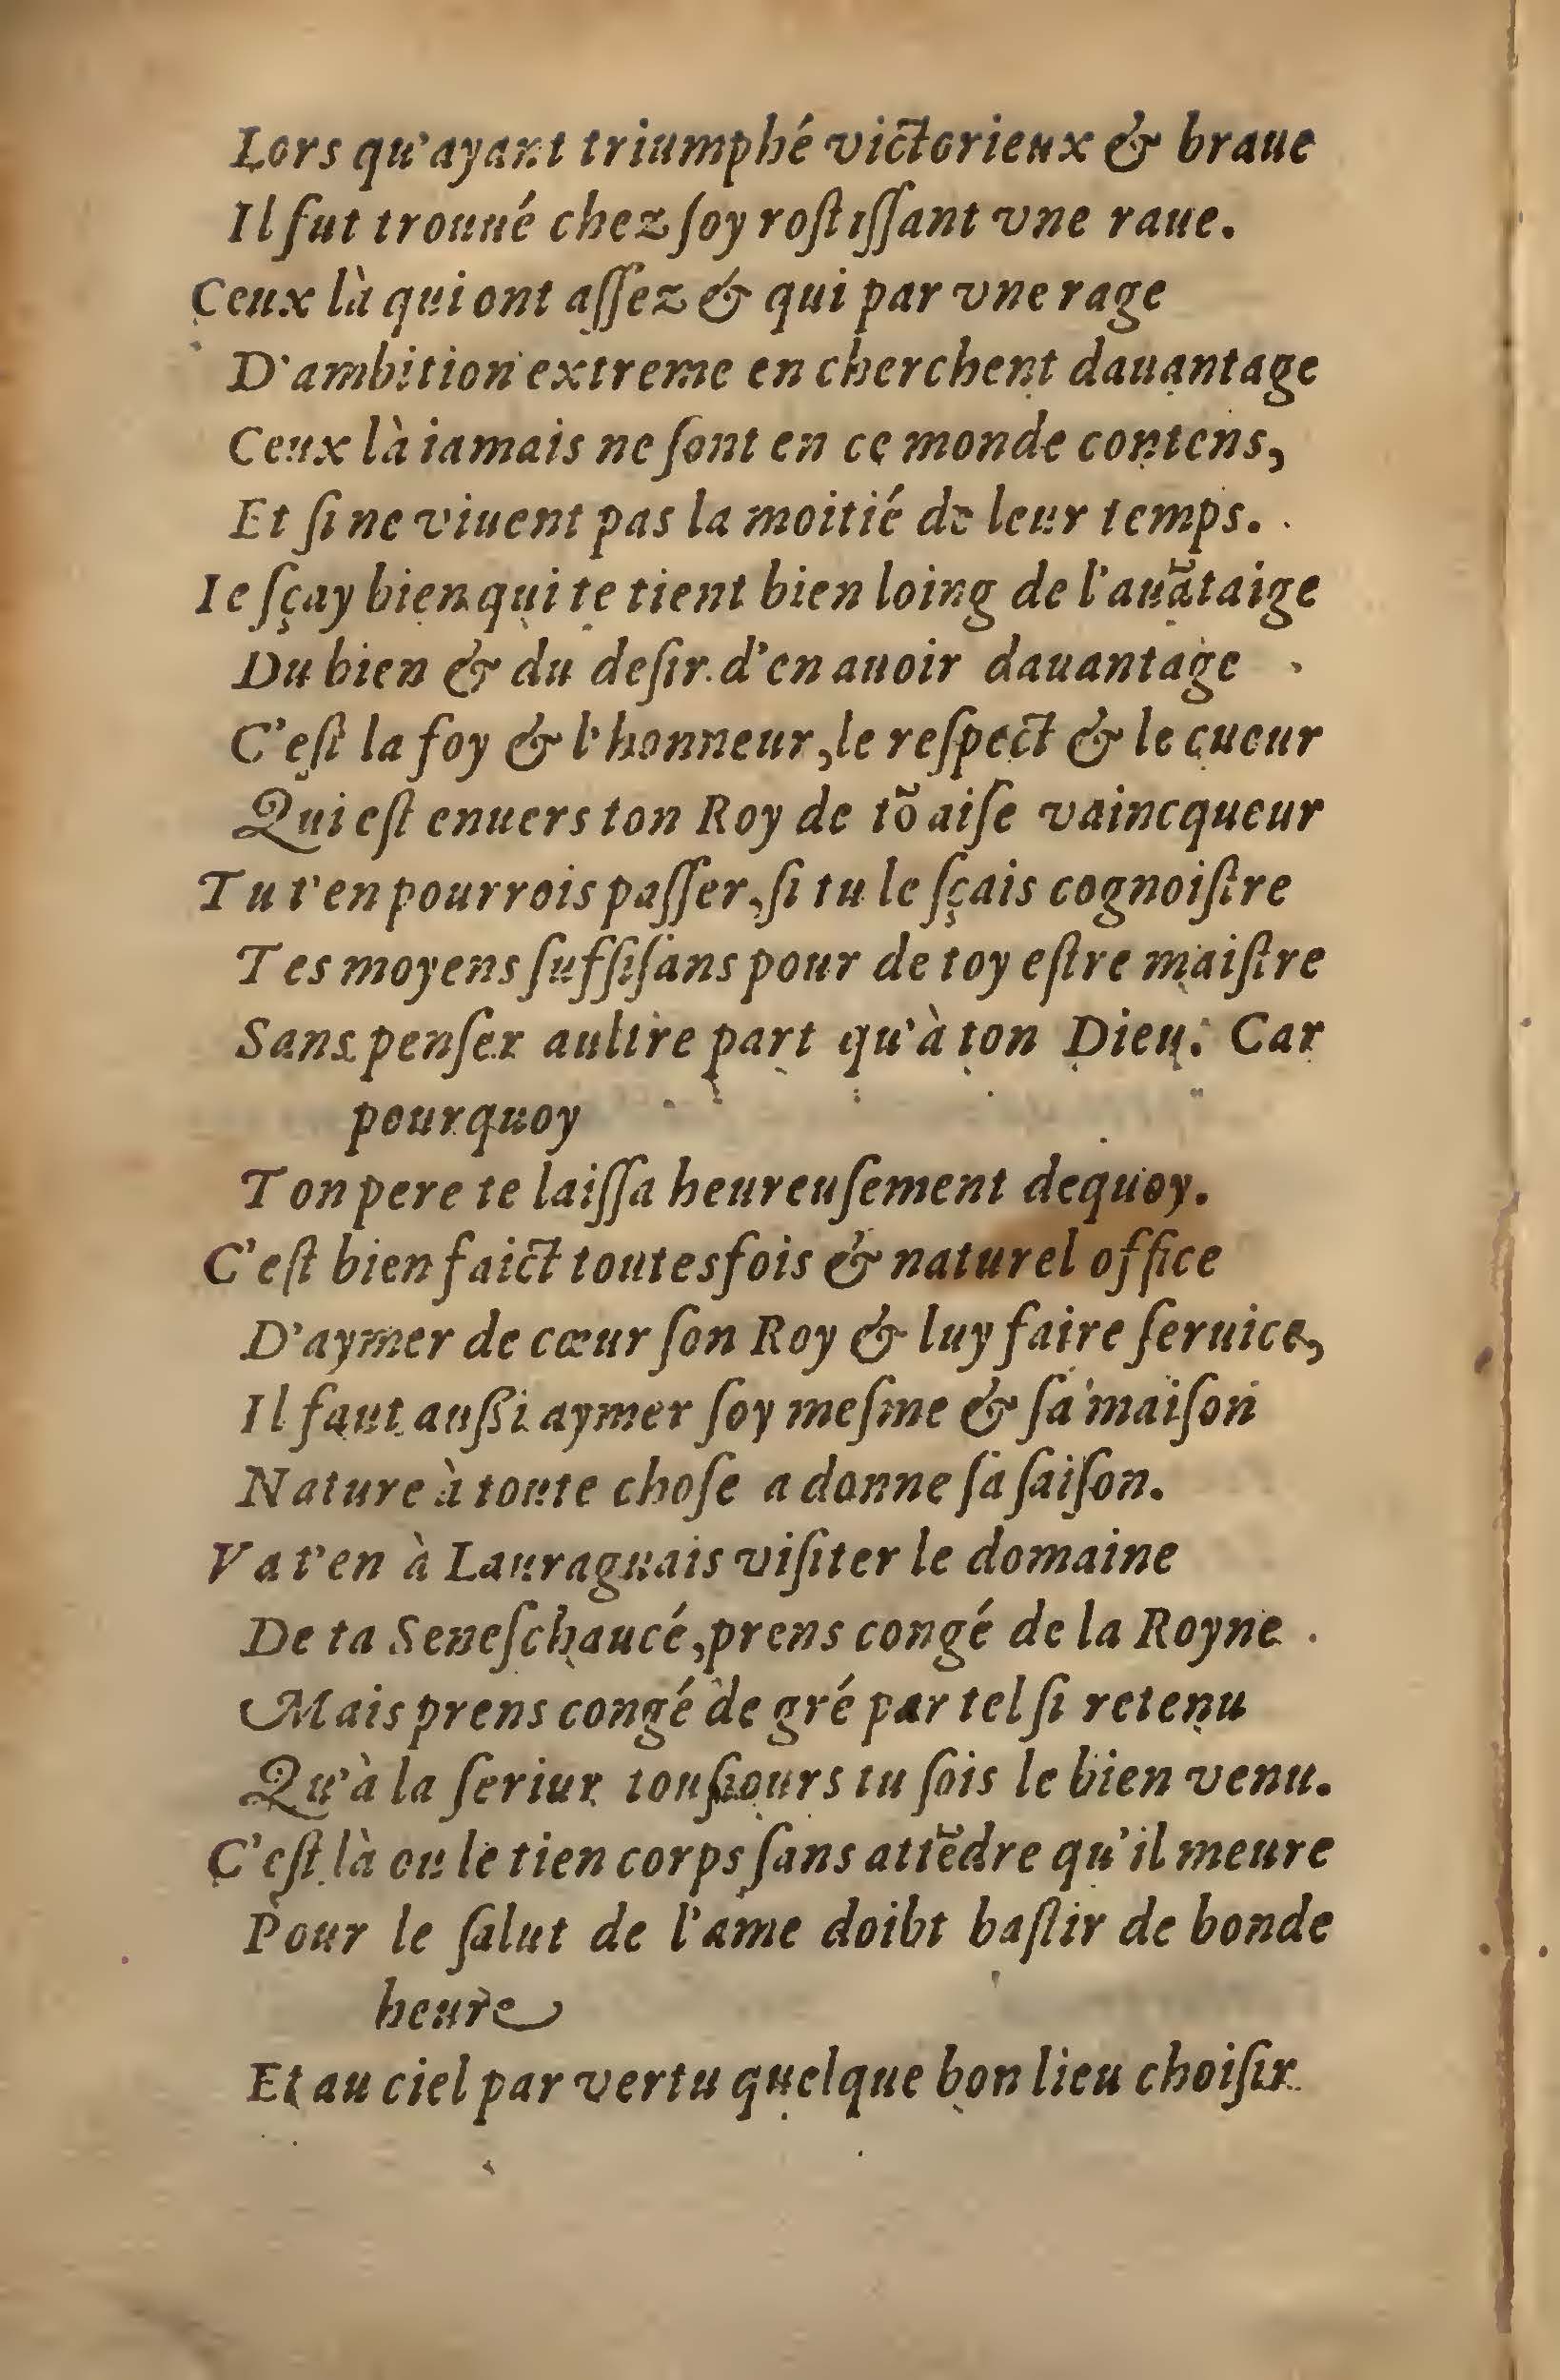 Lors qu'ayant triumphé victorieux & braue
Il fut trouué chez ſoy roſtiſſant vne raue.
Ceux là qui ont aſſez & qui par vne rage
D'ambition extreme en cherchent dauantage
Ceux là iamais ne ſont en ce monde contens,
Et ſi ne viuent pas la moitié de leur temps.
Ie ſçay bien qui te tient bien loing de l'auãtaige
Du bien & du deſir d'en auoir dauantage
C'eſt la foy & l'honneur, le reſpect & le cueur
Qui eſt enuers ton Roy de tõ aiſe vaincqueur
Tu t'en pourrois paſſer, ſi tu le ſçais cognoiſtre
Tes moyens ſuffiſans pour de toy eſtre maiſtre
Sans penſer aultre part qu'à ton Dieu: Car
pourquoy
Ton pere te laiſſa heureuſement dequoy.
C'eſt bien faict toutesfois & naturel office
D'aymer de cœur ſon Roy & luy faire ſeruice,
Il faut außi aymer ſoy meſme & ſa maiſon
Nature à toute choſe a donne ſa ſaiſon.
Va t'en à Lauraguais viſiter le domaine
De ta Seneſchaucé, prens congé de la Royne
Mais prens congé de gré par tel ſi retenu
Qu'à la ſeriur touſiours tu ſois le bien venu.
C'eſt là ou le tien corps ſans attẽdre qu'il meure
Pour le ſalut de l'ame doibt baſtir de bonde
heure
Et au ciel par vertu quelque bon lieu choiſir